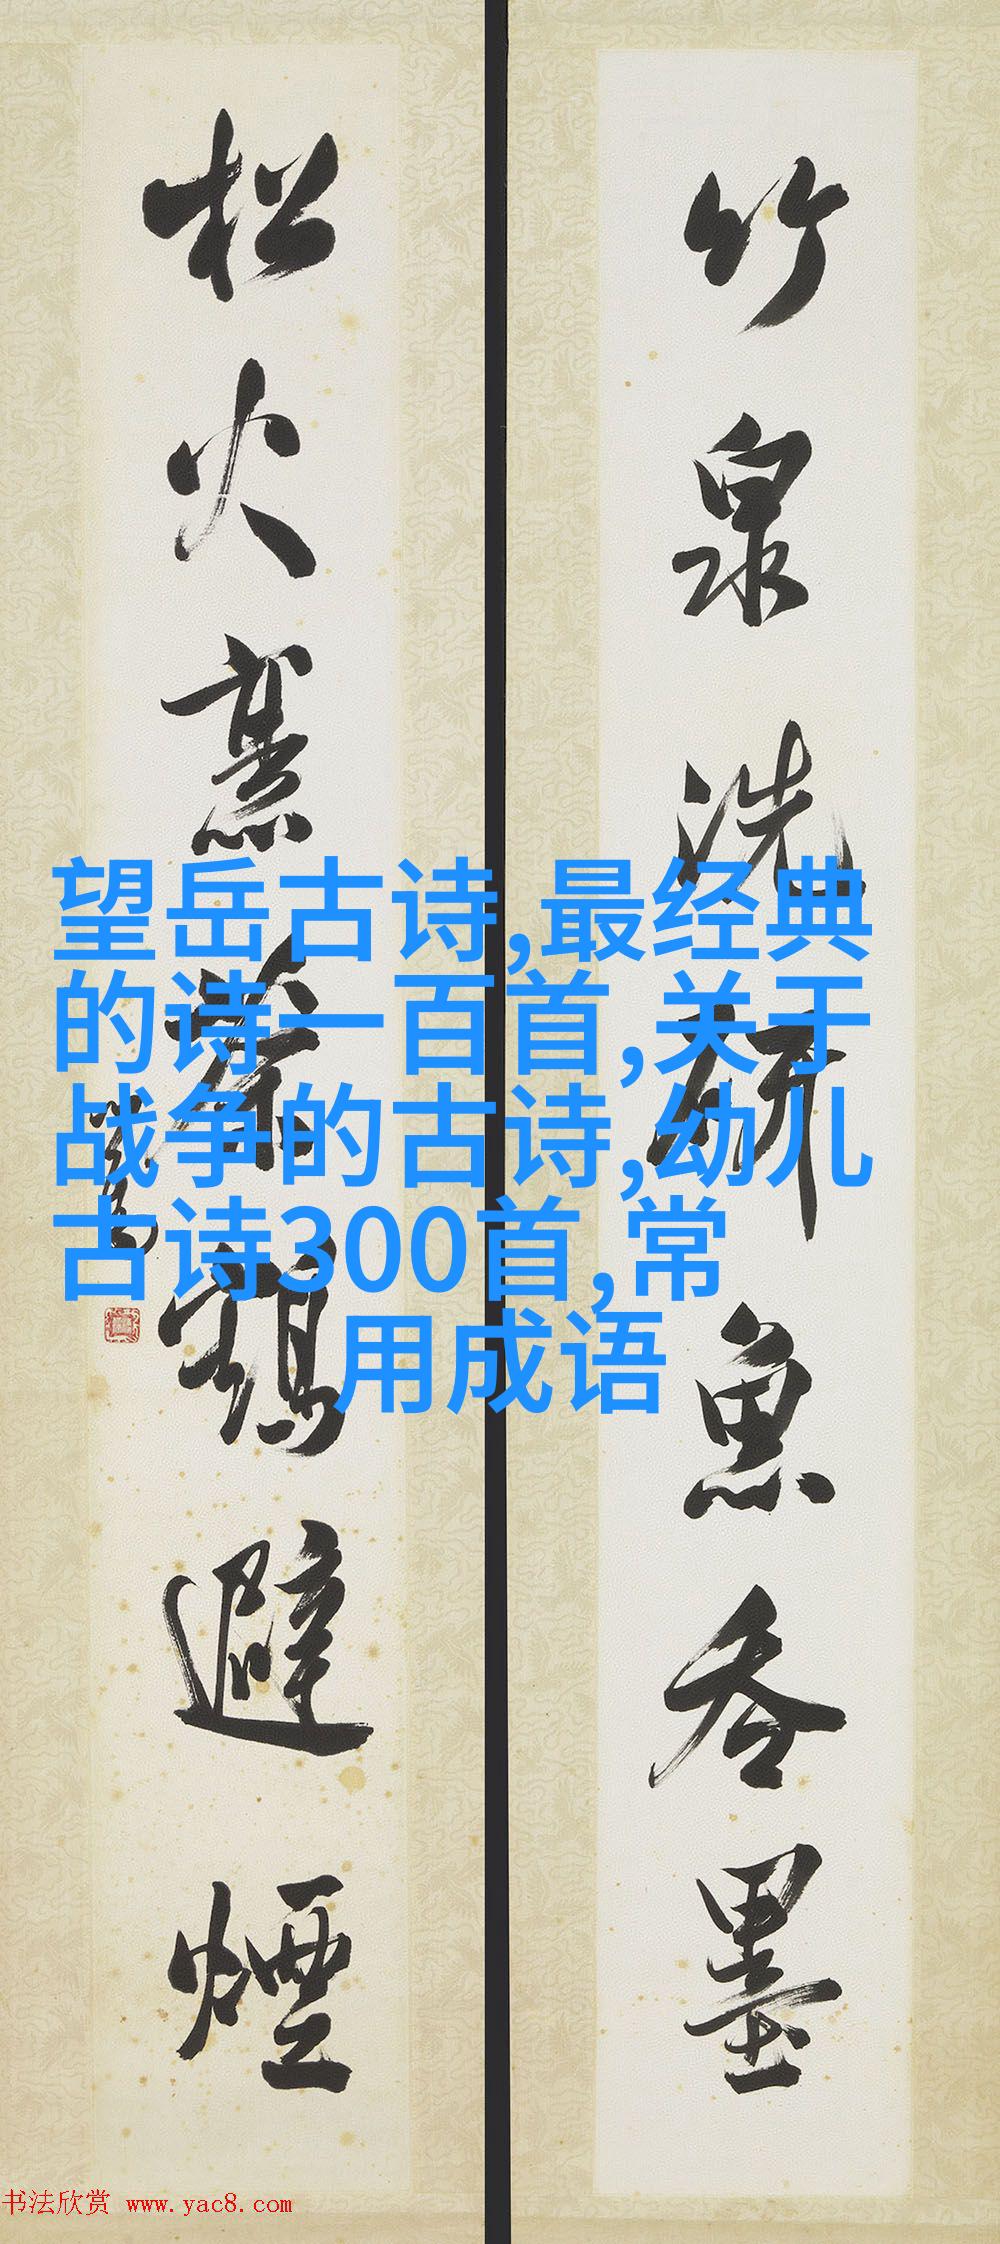 竹泉洗硯魚吞墨
松火烹茶鶴避煙
望岳古诗,最经典
的诗一百首,关于
战争的古诗,幼儿
古诗300首,常
用成语
书法欣赏 www.yac8.com